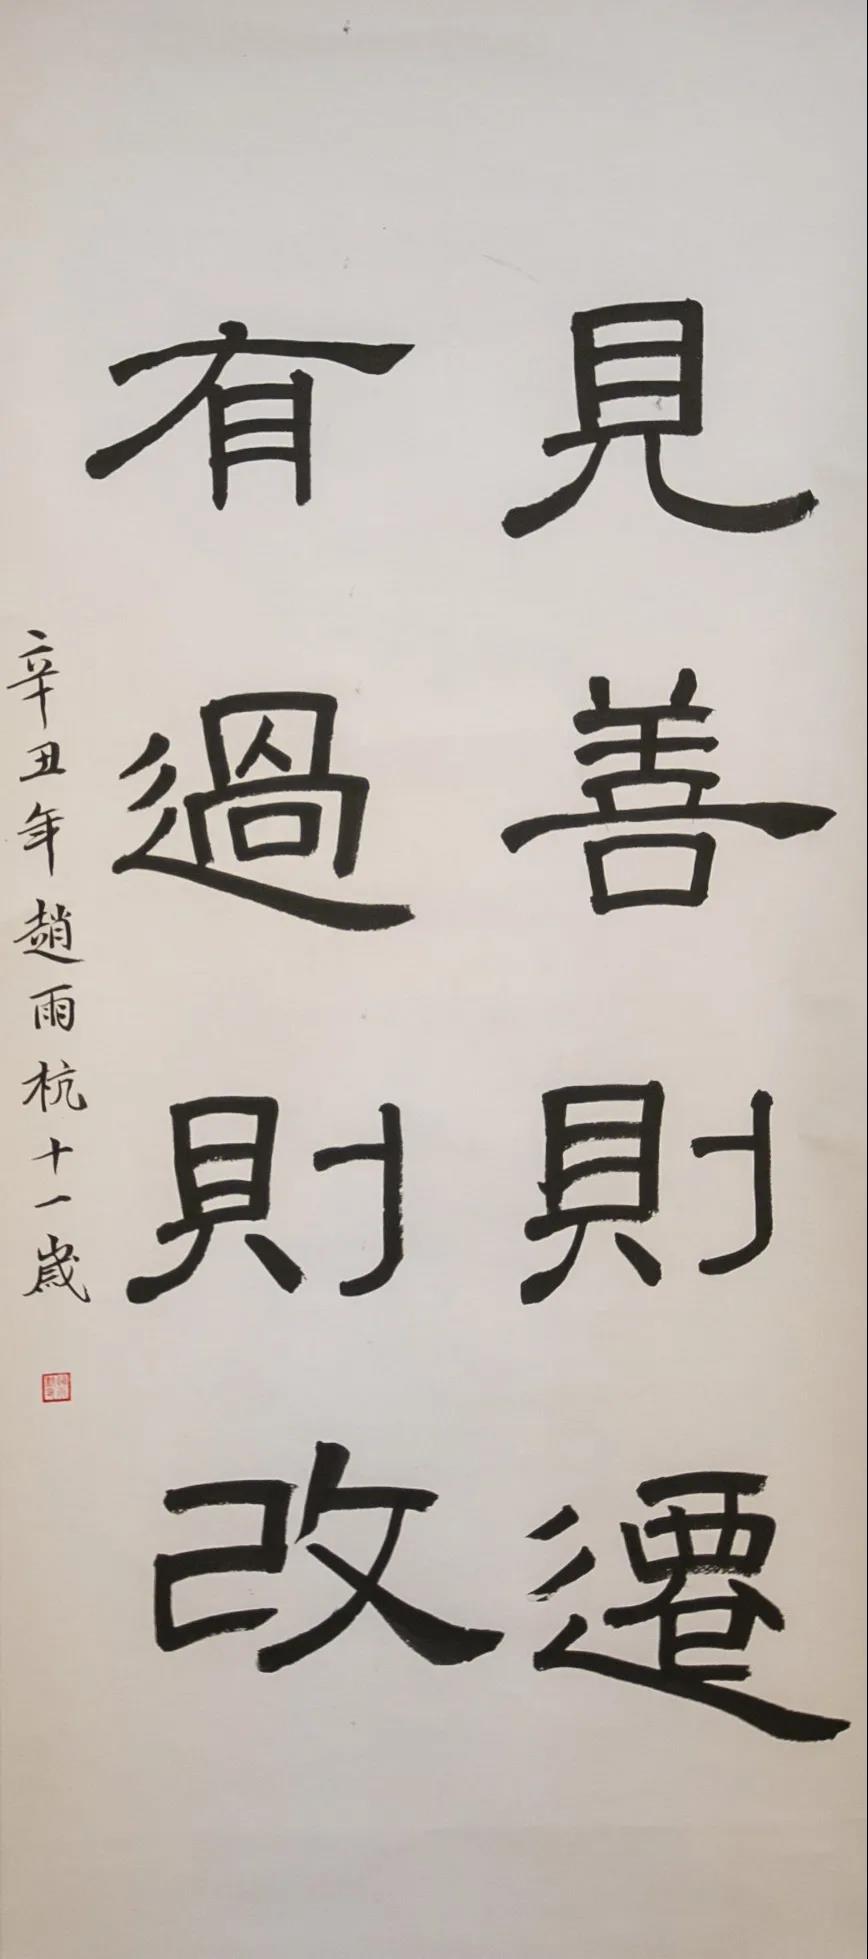 見善則遷
有過則改
辛丑年趙雨杭十一歲